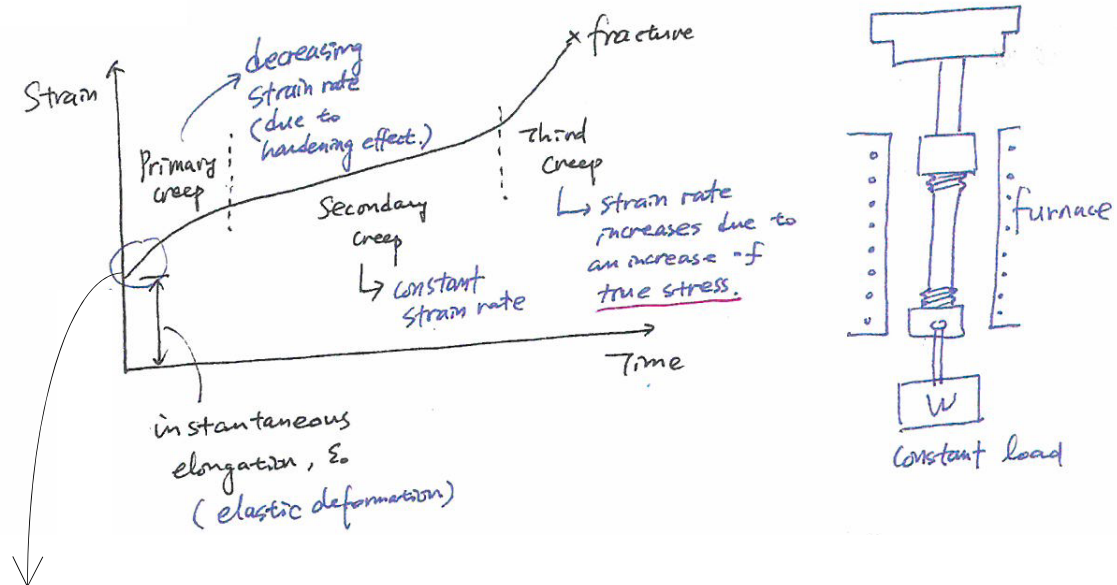 Strain
decreasing
strain rate
(due to
hardening effect.)
Primary
creep
Secondary
creep
constant
strain rate
× fracture
Third
creep
strain rate
increases due to
an increase of
true stress.
Time
instantaneous
elongation, ε₀
(elastic deformation)
furnace
W
constant load